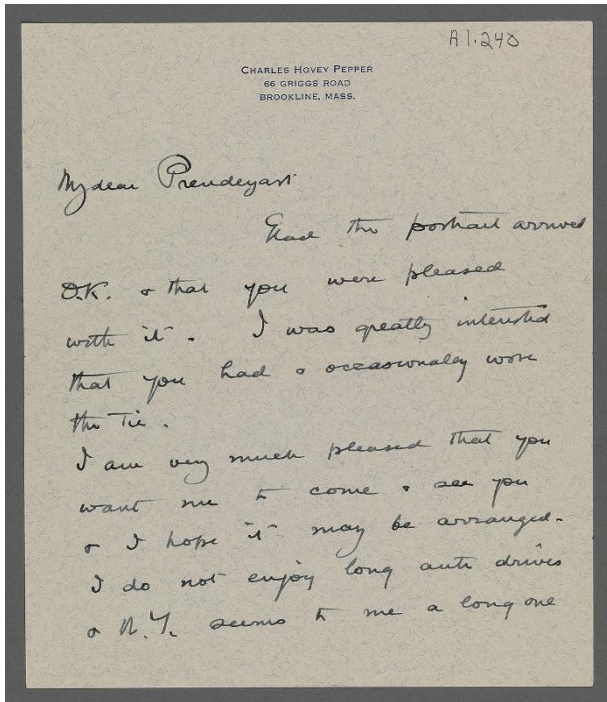 A.1.240
CHARLES HOVEY PEPPER
66 GRIGGS ROAD
BROOKLINE, MASS.
My dear Prendergast
Glad the portrait arrived
O.K. & that you were pleased
with it. I was greatly interested
that you had & occasionaley wore
the Tie.
I am very much pleased that you
want me to come & see you
& I hope it may be arranged.
I do not enjoy long auto drives
& N.Y. seems to me a long one